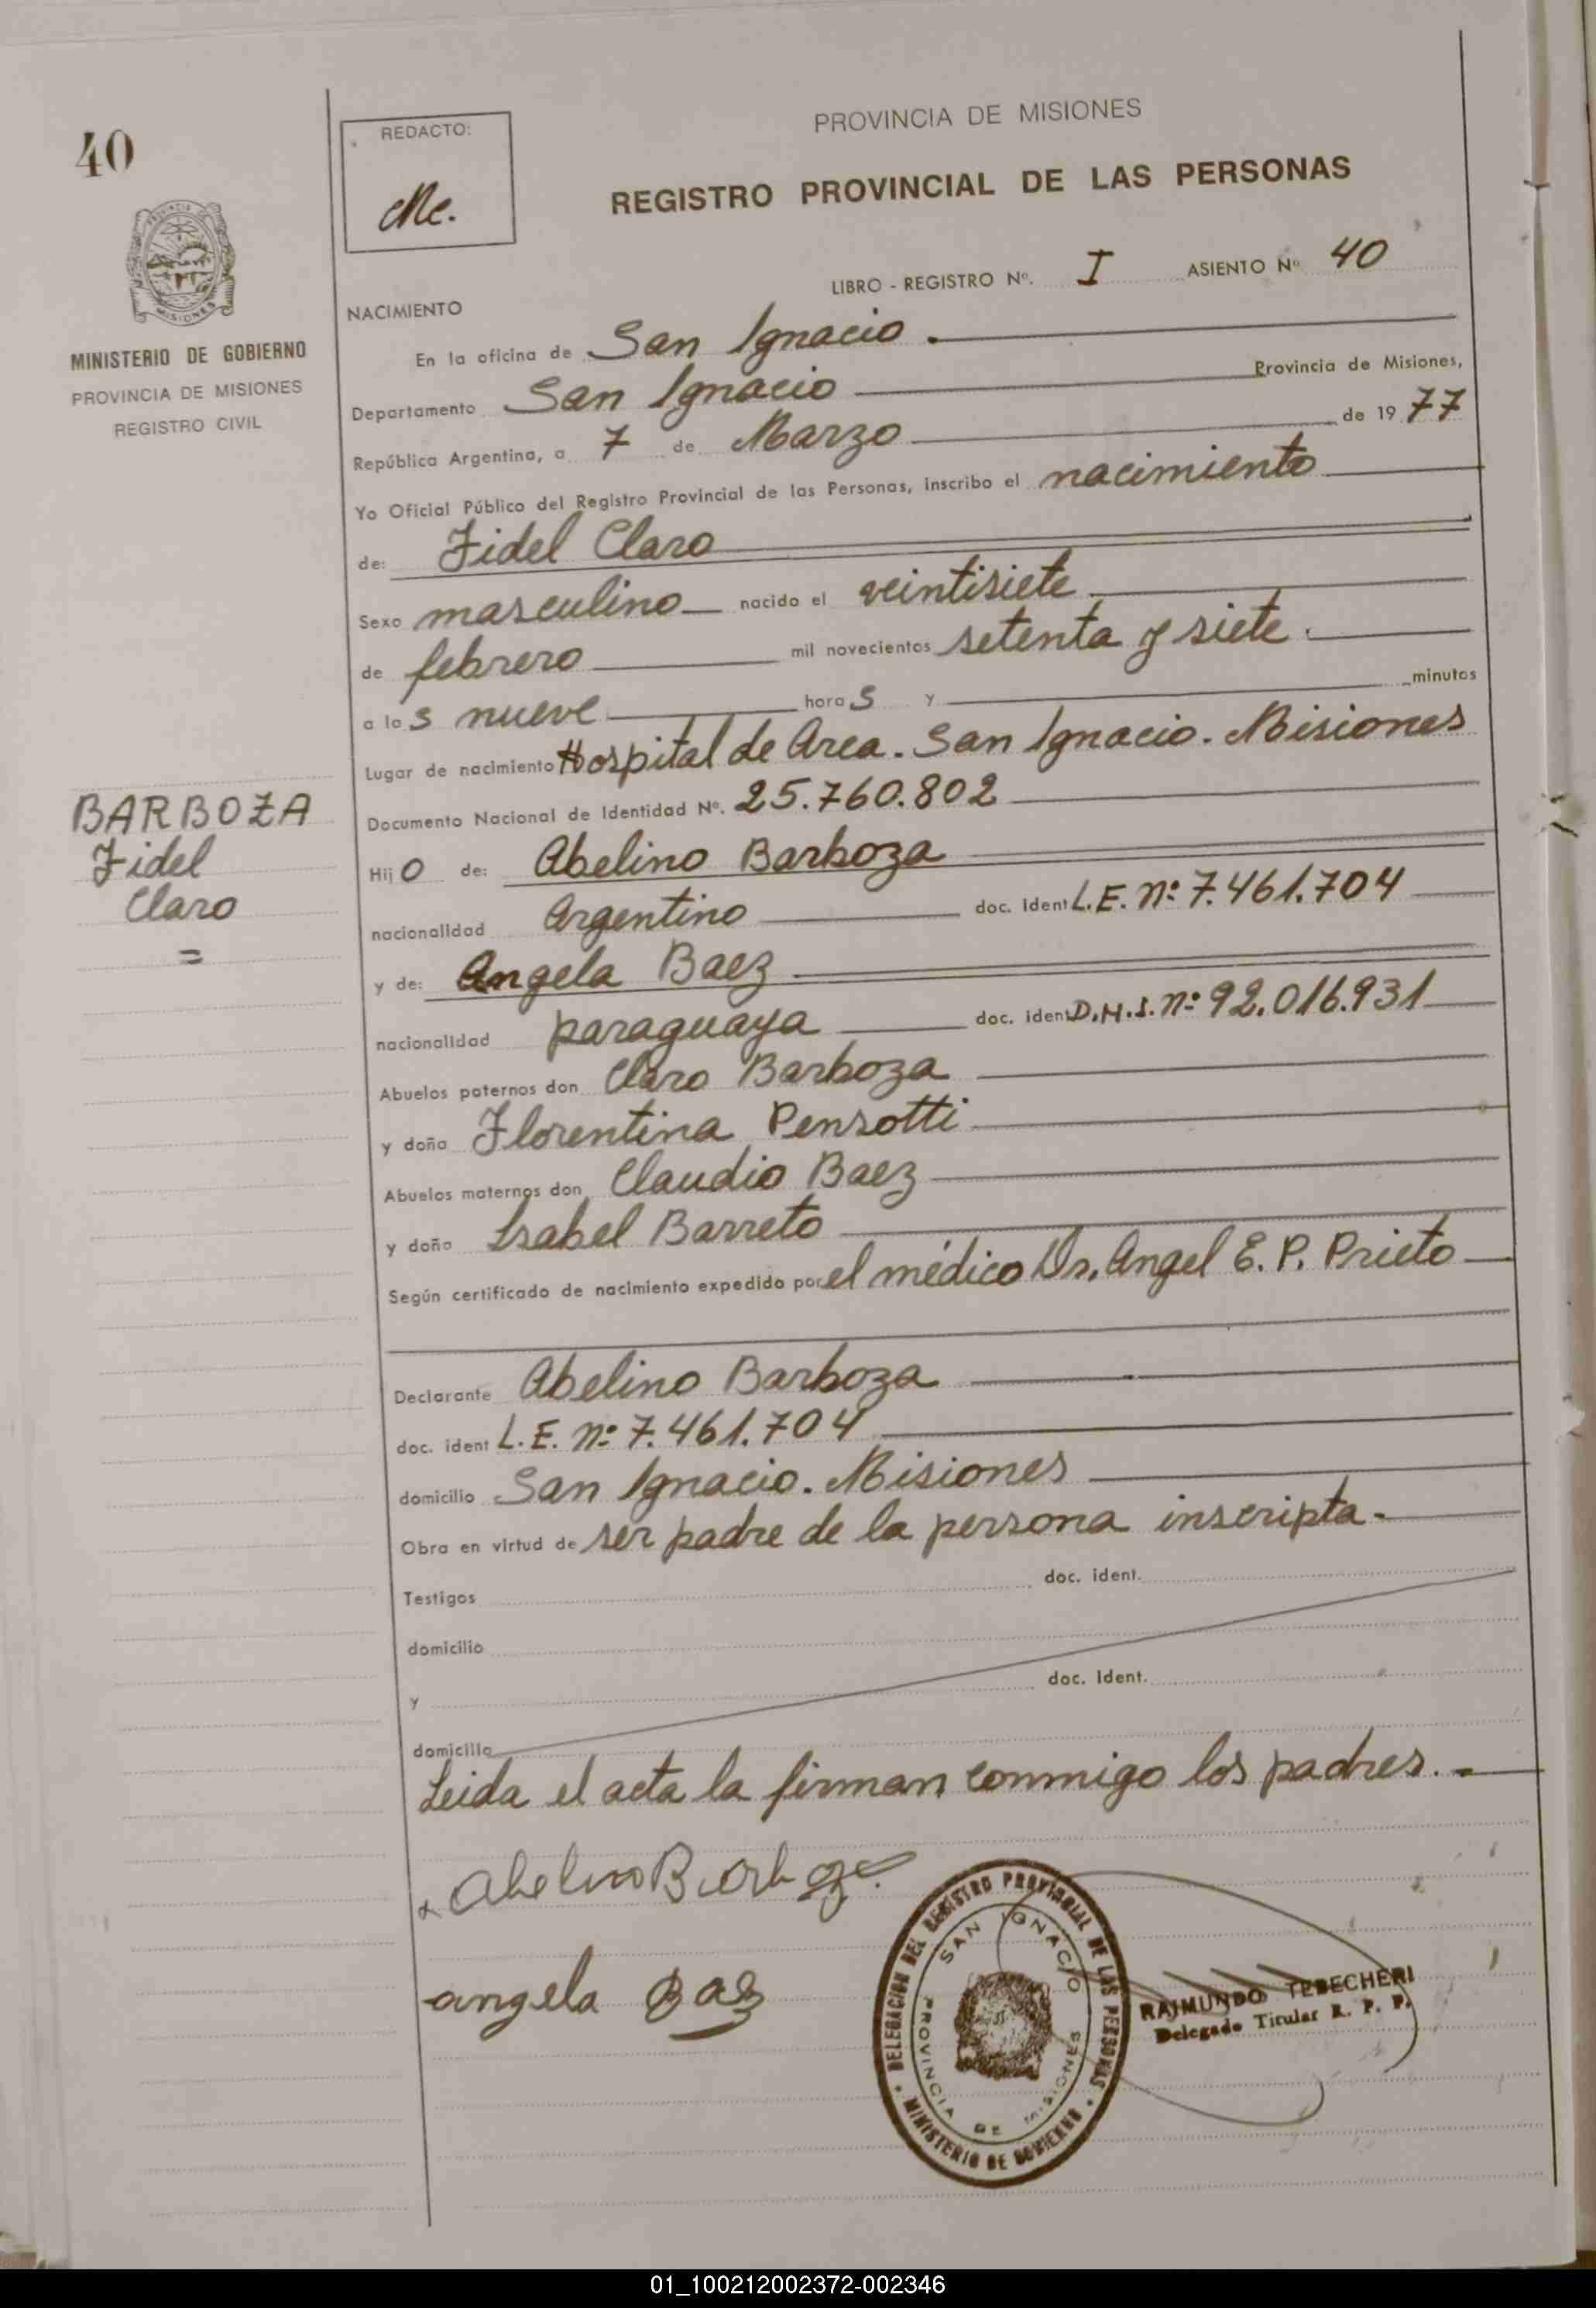 40
PROVINCIA DE MISIONES
MINISTERIO DE GOBIERNO
PROVINCIA DE MISIONES
REGISTRO CIVIL
BARBOZA
Fidel
Claro
=
REDACTO:
PROVINCIA DE MISIONES
REGISTRO PROVINCIAL DE LAS PERSONAS
LIBRO - REGISTRO Nº. I ASIENTO Nº 40
NACIMIENTO
En la oficina de San Ignacio.
Departamento San Ignacio Provincia de Misiones,
República Argentina, a 7 de Marzo de 1977
Yo Oficial Público del Registro Provincial de las Personas, inscribo el nacimiento
de: Fidel Claro
Sexo masculino nacido el veintisiete
de febrero mil novecientos setenta y siete.
a las nueve horas y minutos
Lugar de nacimiento Hospital de Area. San Ignacio. Misiones
Documento Nacional de Identidad Nº. 25.760.802
Hijo de: Abelino Barboza
nacionalidad Argentino doc. ident L.E. nº 7.461.704
y de: Angela Baez
nacionalidad paraguaya doc. ident D.N.I. nº 92.016.931
Abuelos paternos don Claro Barboza
y doña Florentina Penzotti
Abuelos maternos don Claudio Baez
y doña Isabel Barreto
Según certificado de nacimiento expedido por el médico Dr. Angel E. P. Prieto
Declarante Abelino Barboza
doc. ident L.E. nº 7.461.704
domicilio San Ignacio. Misiones
Obra en virtud de ser padre de la persona inscripta.-
Testigos doc. ident.
domicilio
y doc. ident.
domicilio
Leida el acta la firman conmigo los padres.-
Abelino Barboza
angela Baez
DELEGACION DEL REGISTRO PROVINCIAL DE LAS PERSONAS
MINISTERIO DE GOBIERNO
SAN IGNACIO
PROVINCIA DE MISIONES
RAIMUNDO TEBECHERI
Delegado Titular R. P. P.
01_100212002372-002346